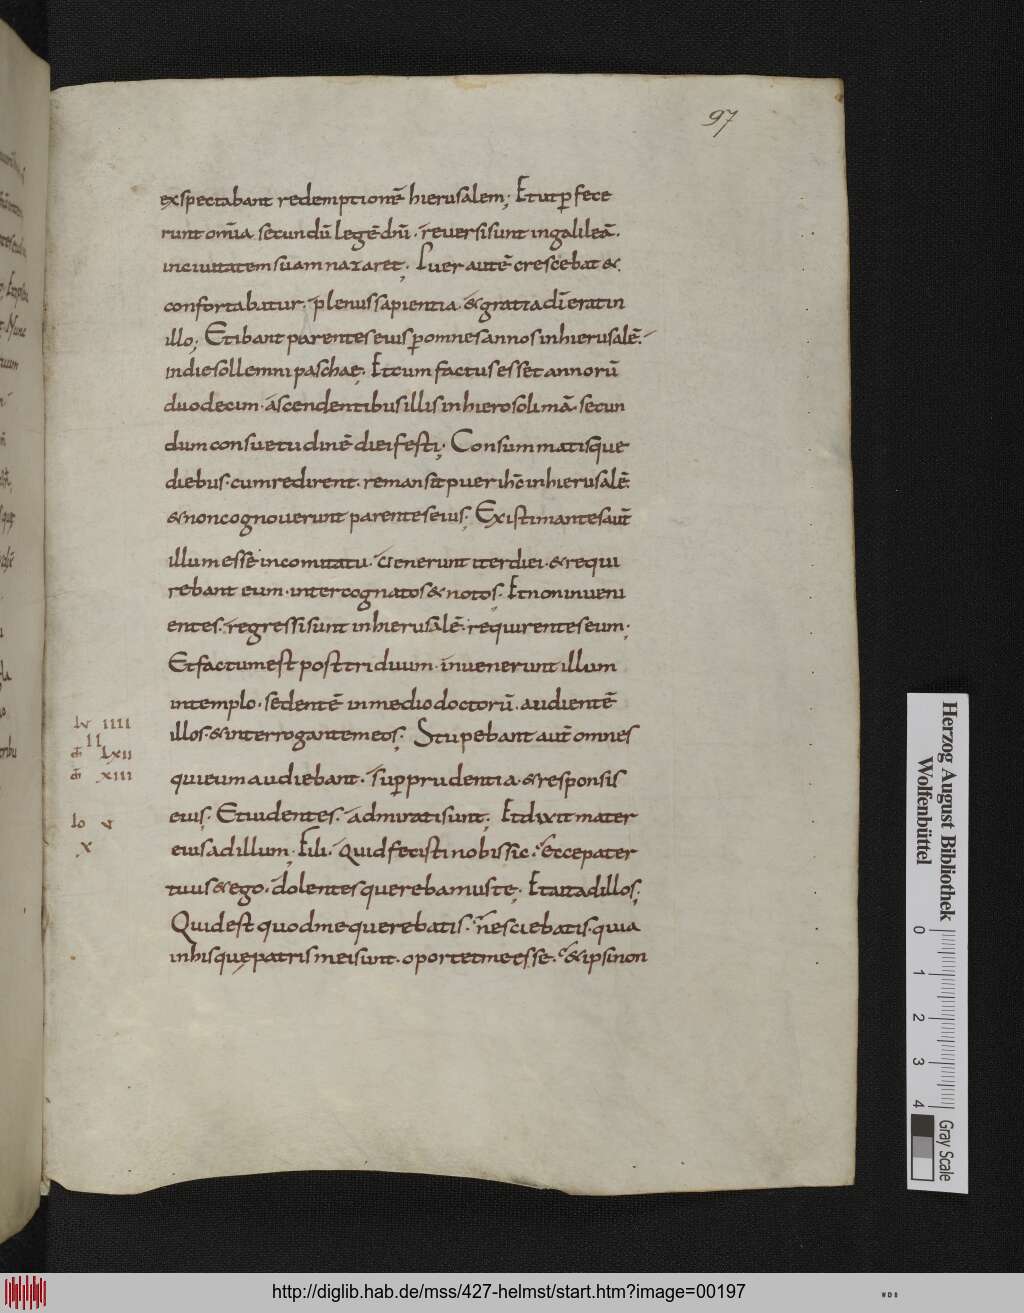 97
exspectabant redemptionē hierusalem; Et ut ꝑfece
runt om̄ia secundū legē dn̄i. reuersi sunt in galileā.
in ciuitatem suam nazaret; Puer autē crescebat &
confortabatur. plenus sapientia. & gratia dī erat in
illo; Et ibant parentes eius ꝑ omnes annos in hierusalē.
in die sollemni paschae; Et cum factus esset annorū
duodecim. ascendentibus illis in hierosolimā. secun
dum consuetudinē diei festi; Consummatisque
diebus. cum redirent. remansit puer ihc̄ in hierusalē.
& non cognouerunt parentes eius; Existimantes aut̄
illum esse in comitatu. uenerunt iter diei. & requi
rebant eum. inter cognatos & notos; Et non inueni
entes. regressi sunt in hierusalē. requirentes eum;
Et factum est post triduum. inuenerunt illum
in templo. sedentē in medio doctorū. audientē
illos. & interrogantem eos; Stupebant aut̄ omnes
qui eum audiebant. suꝑ prudentia. & responsis
eius; Et uidentes. admirati sunt; Et dixit mater
eius ad illum; Fili. Quid fecisti nobis sic. ecce pater
tuus & ego. dolentes querebamus te; Et ait ad illos;
Quid est quod me querebatis. nesciebatis. quia
in his quę patris mei sunt. oportet me esse. & ipsi non
lu IIII
II
m̄ LXII
m̄ XIII
Io V
X
Herzog August Bibliothek
Wolfenbüttel
0 1 2 3 4
Gray Scale
http://diglib.hab.de/mss/427-helmst/start.htm?image=00197